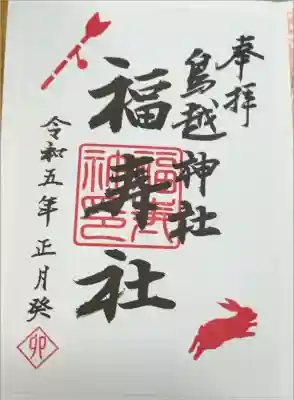 奉拝
鳥越神社
福寿社
令和五年 正月癸
卯